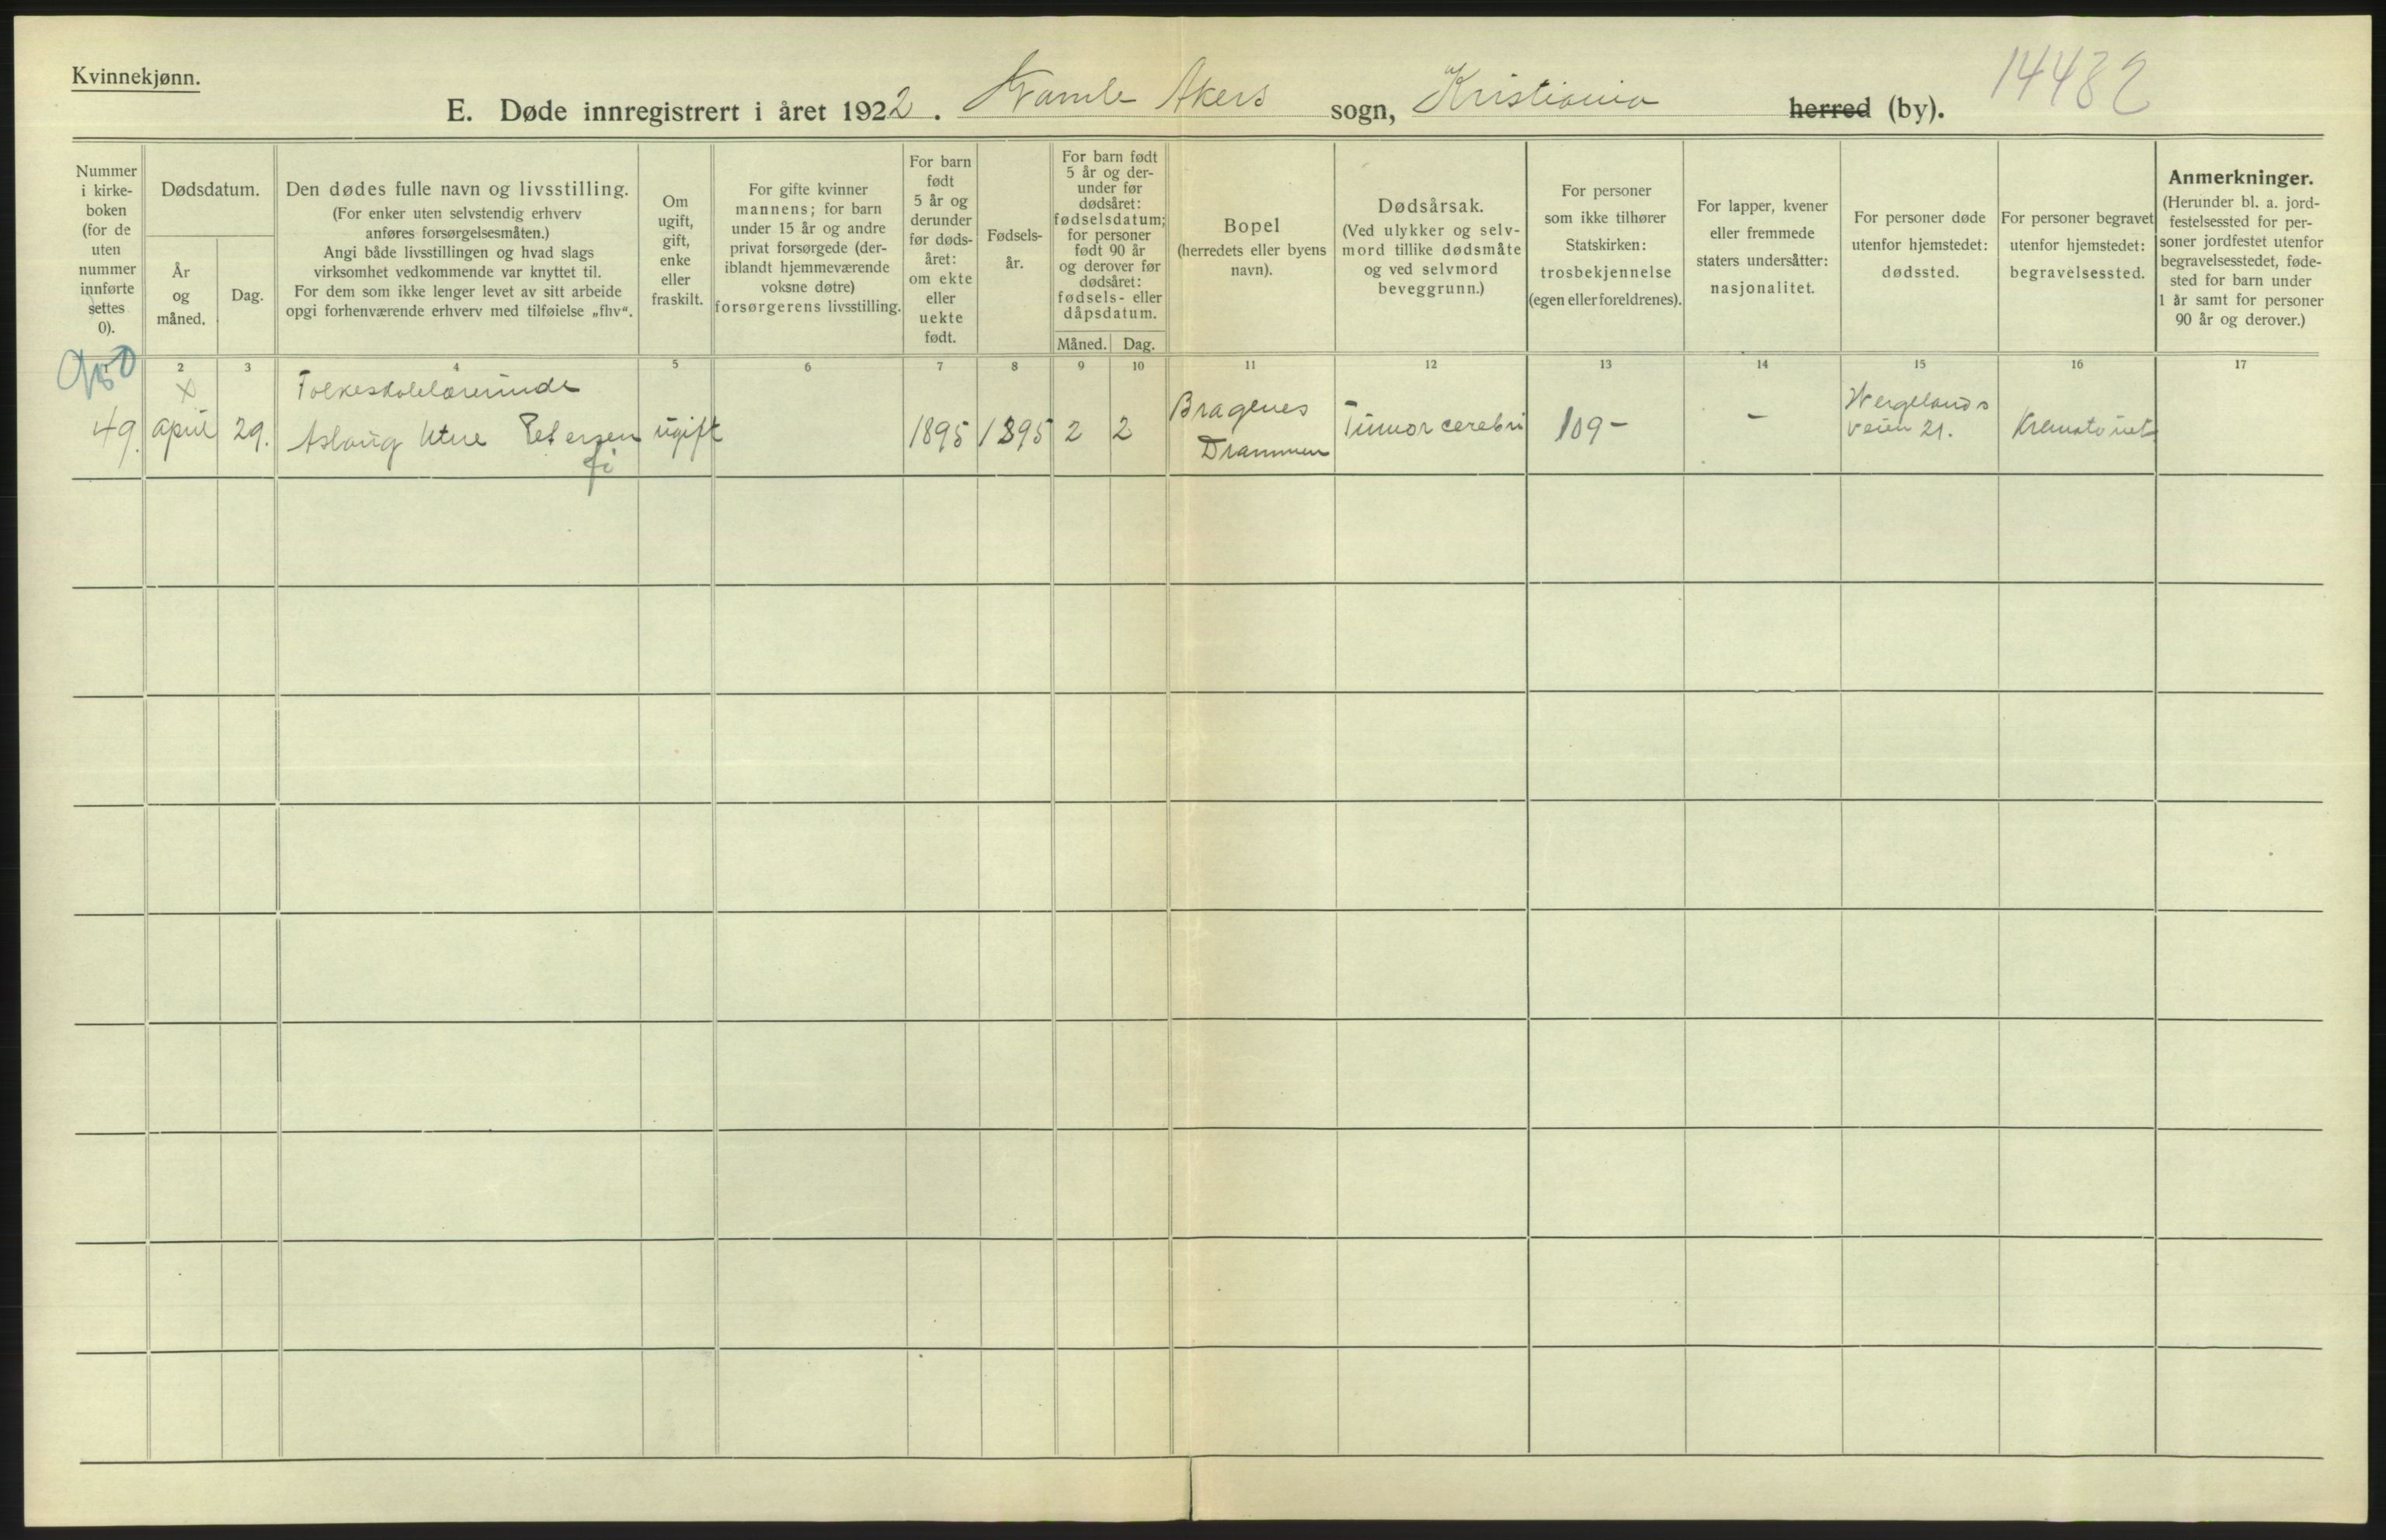 Kvinnekjønn.
E. Døde innregistrert i året 1922. Gamle Akers sogn, Kristiania herred (by). 14482
Nummer
i kirke-
boken
(for de
uten
nummer
innførte
settes
0).
Dødsdatum.
År
og
måned.
Dag.
Den dødes fulle navn og livsstilling.
(For enker uten selvstendig erhverv
anføres forsørgelsesmåten.)
Angi både livsstillingen og hvad slags
virksomhet vedkommende var knyttet til.
For dem som ikke lenger levet av sitt arbeide
opgi forhenværende erhverv med tilføielse „fhv“.
Om
ugift,
gift,
enke
eller
fraskilt.
For gifte kvinner
mannens; for barn
under 15 år og andre
privat forsørgede (der-
iblandt hjemmeværende
voksne døtre)
forsørgerens livsstilling.
For barn
født
5 år og
derunder
før døds-
året:
om ekte
eller
uekte
født.
Fødsels-
år.
For barn født
5 år og der-
under før
dødsåret:
fødselsdatum;
for personer
født 90 år
og derover før
dødsåret:
fødsels- eller
dåpsdatum.
Måned. Dag.
Bopel
(herredets eller byens
navn).
Dødsårsak.
(Ved ulykker og selv-
mord tillike dødsmåte
og ved selvmord
beveggrunn.)
For personer
som ikke tilhører
Statskirken:
trosbekjennelse
(egen eller foreldrenes).
For lapper, kvener
eller fremmede
staters undersåtter:
nasjonalitet.
For personer døde
utenfor hjemstedet:
dødssted.
For personer begravet
utenfor hjemstedet:
begravelsessted.
Anmerkninger.
(Herunder bl. a. jord-
festelsessted for per-
soner jordfestet utenfor
begravelsesstedet, føde-
sted for barn under
1 år samt for personer
90 år og derover.)
2 3 4 5 6 7 8 9 10 11 12 13 14 15 16 17
950
x
49. april 29.
Folkeskolelærerinde
Aslaug Petersen
ugift
1895 1895 2 2
Bragenes
Drammen
Tumor cerebri
109 -
-
Wergelands
veien 21.
Krematoriet